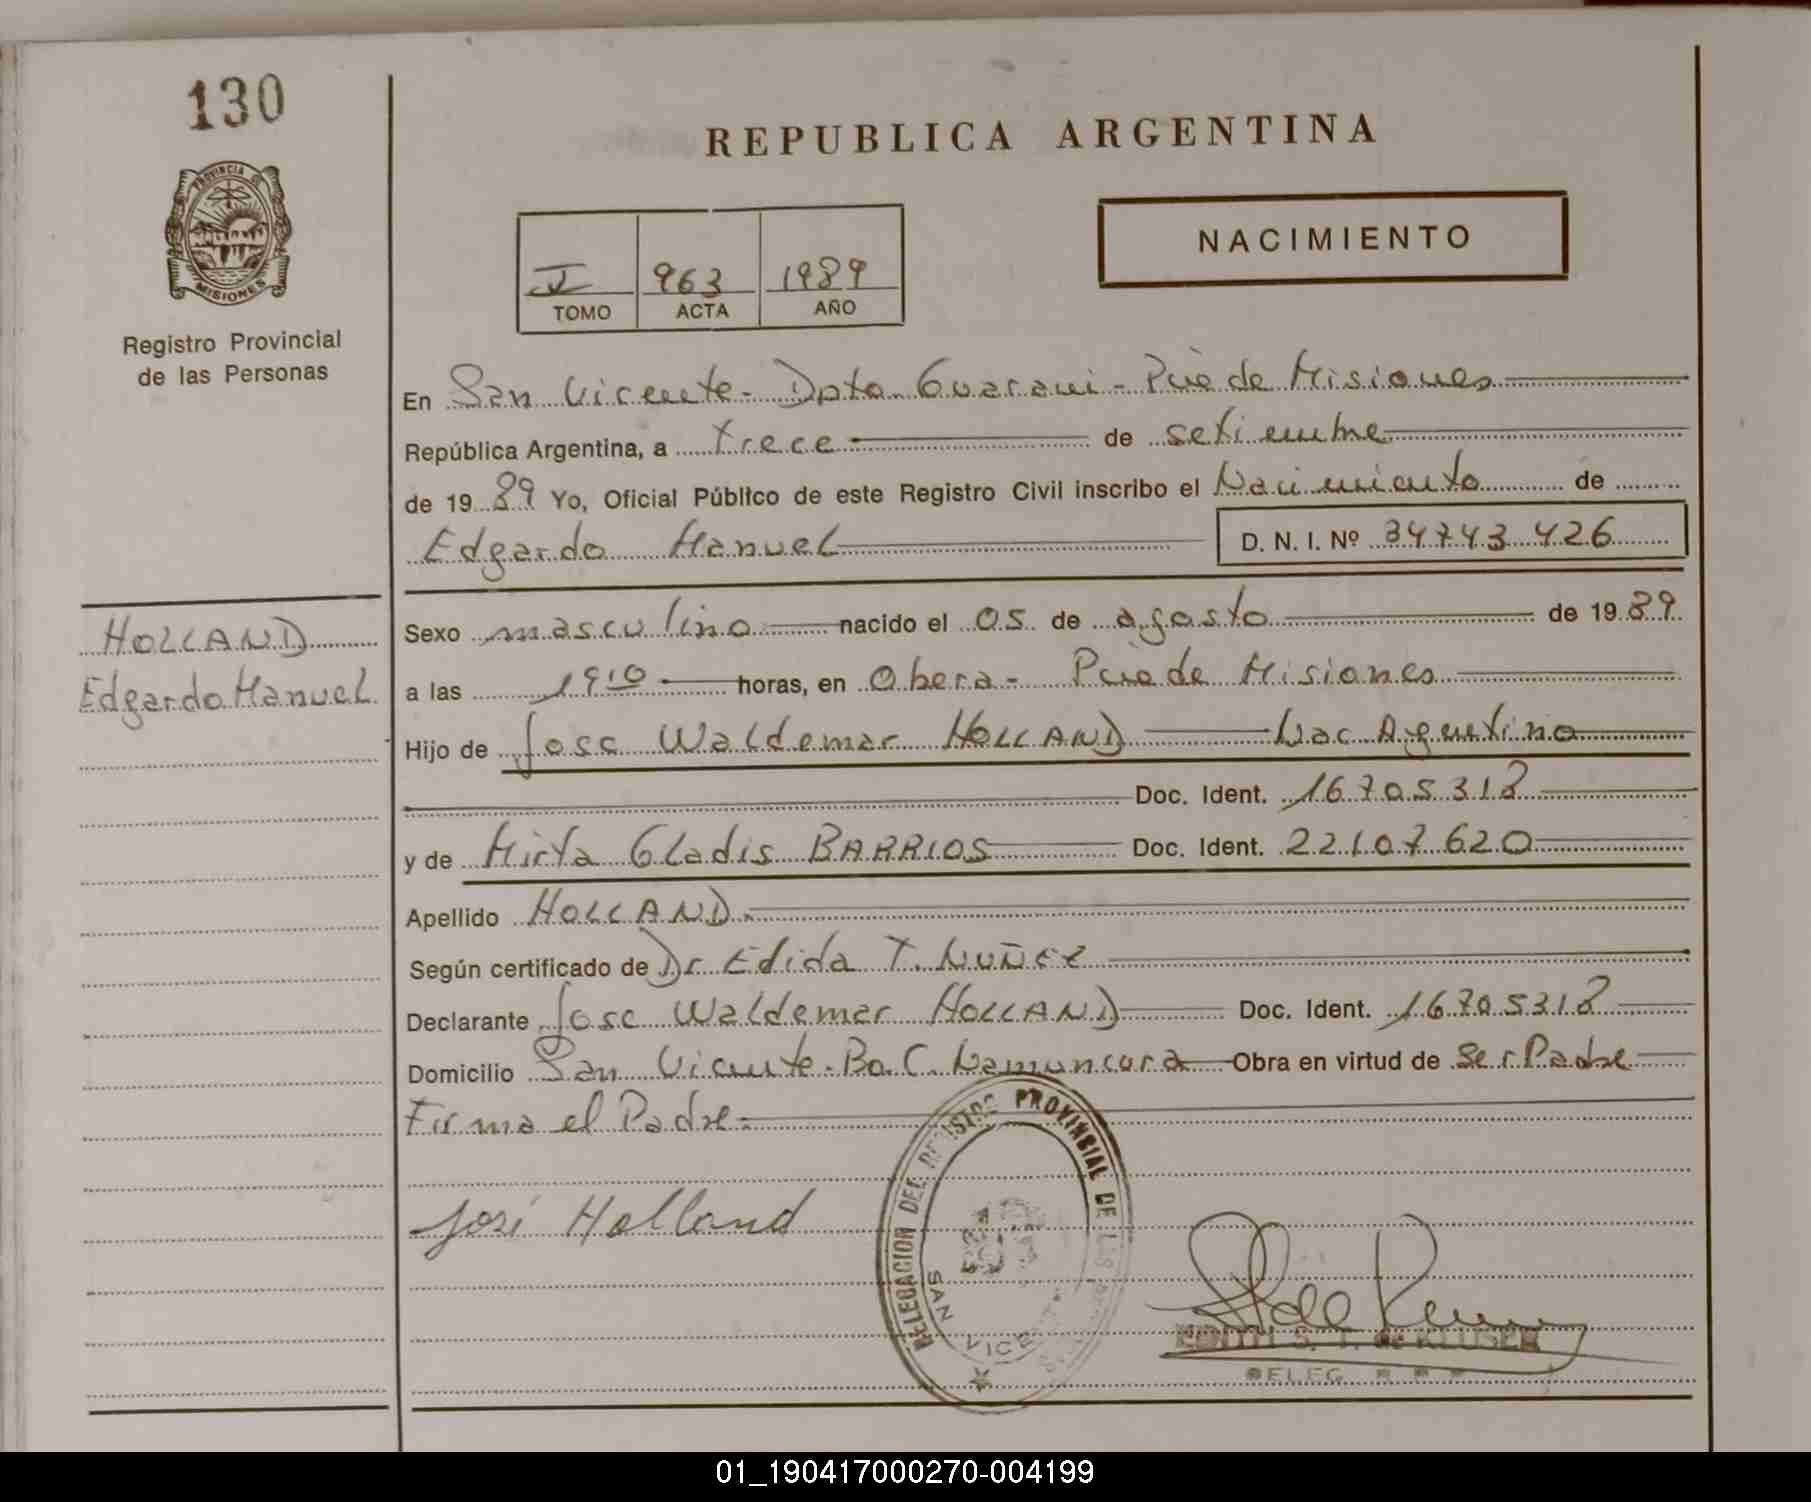 130
REPUBLICA ARGENTINA
PROVINCIA DE
MISIONES
NACIMIENTO
V 963 1989
TOMO ACTA AÑO
Registro Provincial
de las Personas
En San Vicente - Dpto Guarani - Pcia de Misiones
República Argentina, a trece de setiembre
de 19 89 Yo, Oficial Público de este Registro Civil inscribo el Nacimiento de
Edgardo Manuel D. N. I. Nº 34743 426
HOLLAND
Edgardo Manuel
Sexo masculino nacido el 05 de agosto de 19 89
a las 1910 horas, en Obera - Pcia de Misiones
Hijo de Jose Waldemar HOLLAND Nac Argentino
Doc. Ident. 16705318
y de Mirta Gladis BARRIOS Doc. Ident. 22107620
Apellido HOLLAND.
Según certificado de Dr Elida T. NUÑEZ
Declarante Jose Waldemar HOLLAND Doc. Ident. 16705318
Domicilio San Vicente - Bo. C. Namuncura Obra en virtud de Ser Padre
Firma el Padre -
José Holland
DELEGACION DEL REGISTRO PROVINCIAL DE LAS
SAN VICENTE
EDITH S. T. de KLUSER
DELEG
01_190417000270-004199